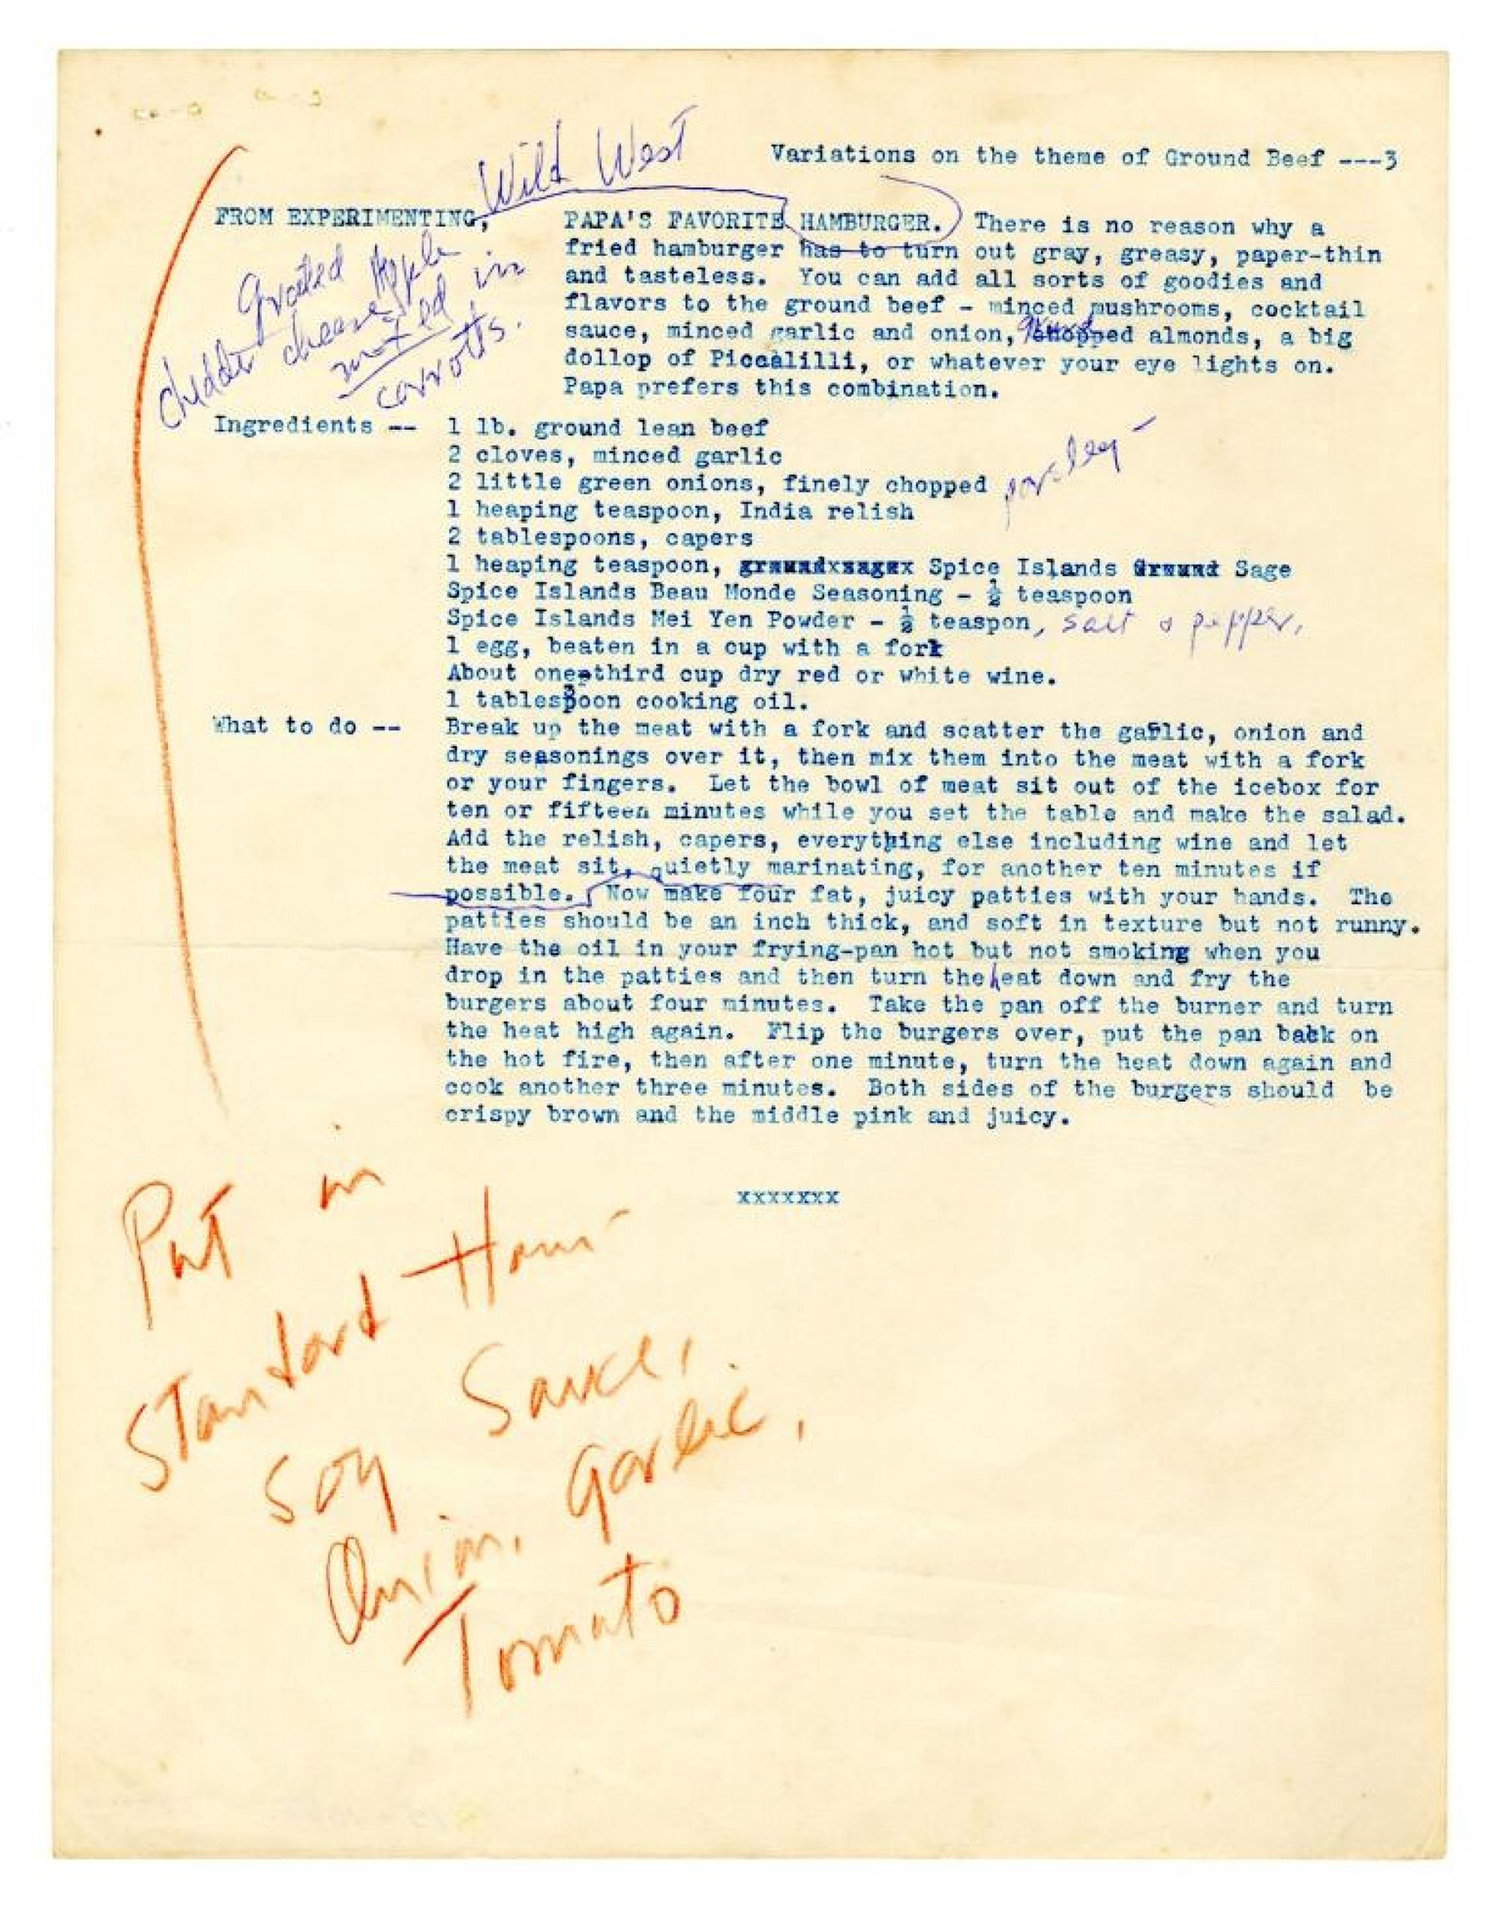 Wild West
Variations on the theme of Ground Beef ---3
FROM EXPERIMENTING, PAPA'S FAVORITE HAMBURGER. There is no reason why a
fried hamburger has to turn out gray, greasy, paper-thin
and tasteless. You can add all sorts of goodies and
flavors to the ground beef - minced mushrooms, cocktail
sauce, minced garlic and onion, chopped almonds, a big
dollop of Piccalilli, or whatever your eye lights on.
Papa prefers this combination.
Grated Apple
chedder cheese
mixed in
carrotts.
Ingredients -- 1 lb. ground lean beef
2 cloves, minced garlic
2 little green onions, finely chopped parsley
1 heaping teaspoon, India relish
2 tablespoons, capers
1 heaping teaspoon, Spice Islands Sage
Spice Islands Beau Monde Seasoning - ½ teaspoon
Spice Islands Mei Yen Powder - ½ teaspon, salt & pepper,
1 egg, beaten in a cup with a fork
About one-third cup dry red or white wine.
1 tablespoon cooking oil.
What to do -- Break up the meat with a fork and scatter the garlic, onion and
dry seasonings over it, then mix them into the meat with a fork
or your fingers. Let the bowl of meat sit out of the icebox for
ten or fifteen minutes while you set the table and make the salad.
Add the relish, capers, everything else including wine and let
the meat sit, quietly marinating, for another ten minutes if
possible. Now make four fat, juicy patties with your hands. The
patties should be an inch thick, and soft in texture but not runny.
Have the oil in your frying-pan hot but not smoking when you
drop in the patties and then turn the heat down and fry the
burgers about four minutes. Take the pan off the burner and turn
the heat high again. Flip the burgers over, put the pan back on
the hot fire, then after one minute, turn the heat down again and
cook another three minutes. Both sides of the burgers should be
crispy brown and the middle pink and juicy.
xxxxxxx
Put in
Standard Ham-
Soy Sauce,
Onion, Garlic,
Tomato